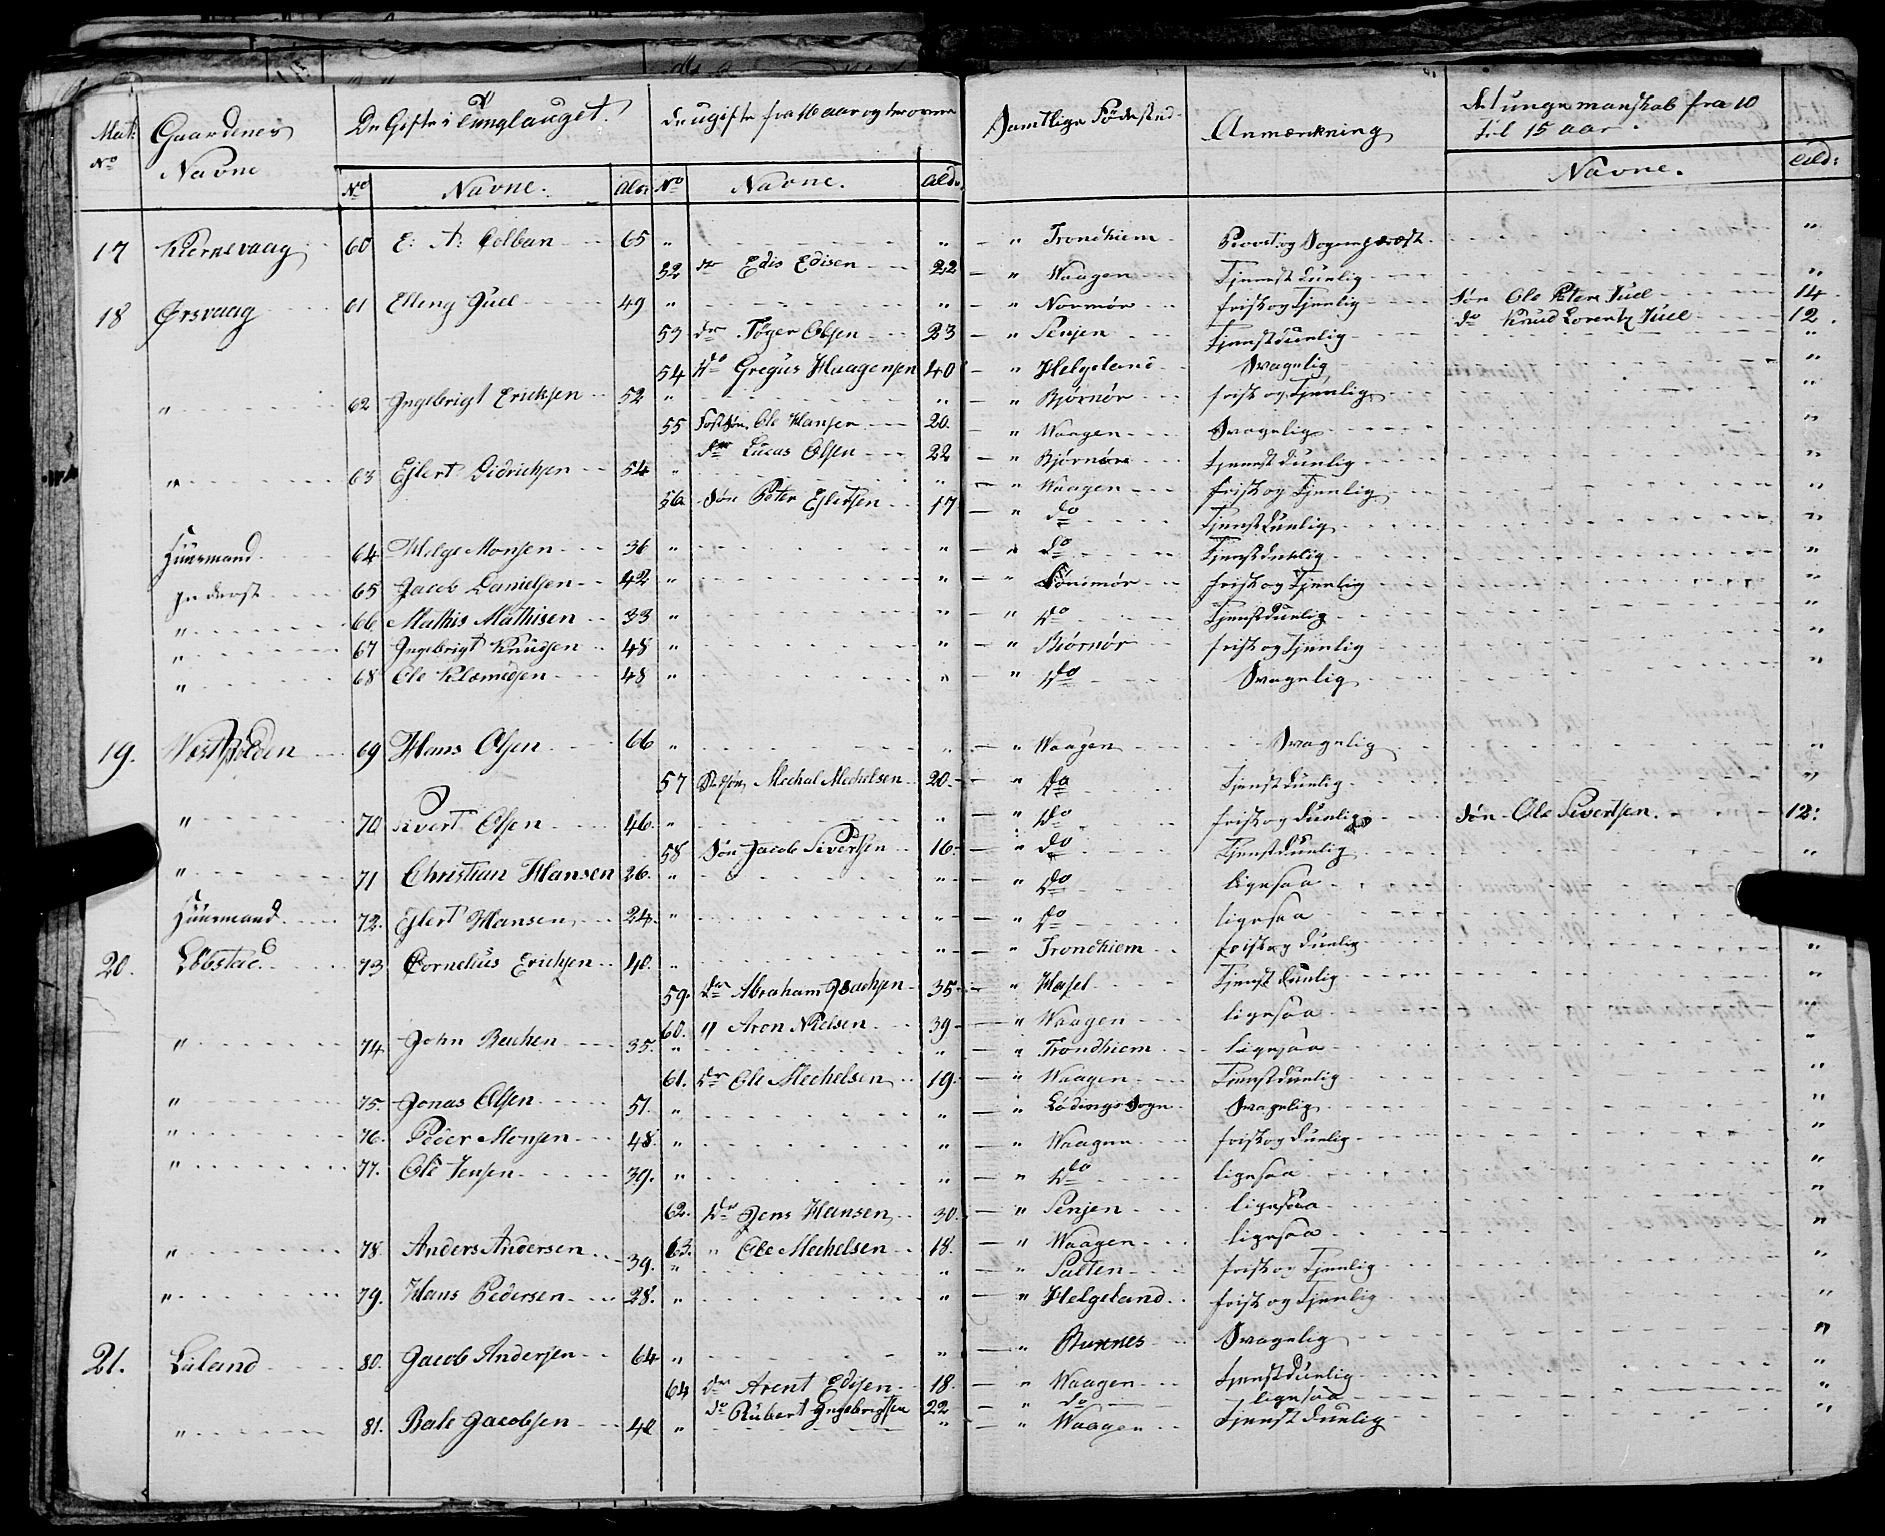 Mat: No Gaardenes Navne De Gifte i Tinglauget. de ugifte fra 16 aar og derover Samtlige Fødested Anmærkning det unge mandskab fra 10 til 15 aar.
No Navne. Ald: No Navne. Ald: Navne. Ald:
17 Kiernevaag 60 E: A: Colban 65 " " " Trondhiem Provst og Sognepræst "
52 dr Edis Edisen 22 " Waagen Tjenstdunlig "
18 Ørsvaag 61 Elling Juel 49 " " " Normør frisk og Tjenlig Søn Ole Peter Juel 14
53 dr Tøger Olsen 23 " Senjen Tjenstdunlig do Knud Lorentz Juel 12
54 do Gregus Haagensen 40 " Helgeland Svagelig "
" 62 Ingebrigt Ericksen 52 " " " Bjørnør frisk og Tjenlig "
55 Fostsøn, Ole Hansen 20 " Waagen Svagelig "
dr Lucas Olsen 22 " Bjørnør Tjenstdunlig "
" 63 Ejlert Didrichsen 54 " " " Waagen frisk og Tjenlig "
56 Søn Peter Ejlertsen 17 " do Tjenstdunlig "
Huusmand 64 Helge Monsen 36 " " " do Tjenstdunlig "
Inderst 65 Jacob Danielsen 42 " " " Sønimør frisk og Tjenlig "
" 66 Mathis Mathisen 33 " " " do Tjenstdunlig "
" 67 Ingebrigt Knudsen 48 " " " Biørnør frisk og Tjenlig "
" 68 Ole Klemedsen 48 " " " do Svagelig "
19. Vestpolden 69 Hans Olsen 66 " " " Waagen Svagelig "
57 St: søn, Mechal Mechelsen 20 " do Tjenstdunlig "
" 70 Sivert Olsen 46 " " " do frisk og dunlig Søn Ole Sivertsen 12:
58 Søn Jacob Sivertsen 16 " do Tjenstdunlig "
" 71 Christian Hansen 26 " " " do ligesaa
Huusmand 72. Ejlert Hansen 24. " " " do ligesaa
20. Løbstad 73 Cornelius Erichsen 40. " " " Trondhiem frisk og dunlig "
59. dr Abraham Isachsen 35 " Hasel Tjenstdunlig "
60. " Aron Nielsen 39 " Waagen ligesaa "
" 74 John Bachen 35. " " " Trondhiem ligesaa "
61. dr Ole Mechelsen 19. " Waagen Tjenstdunlig "
" 75. Jonas Olsen 51. " " " Lødings Sogn Svagelig "
" 76. Peder Monsen 48. " " " Waagen frisk og dunlig "
" 77. Ole Jensen 39. " " " do ligesaa "
62. dr Jens Hansen 30. " Senjen ligesaa "
63. " Ole Mechelsen 18. " Waagen ligesaa "
" 78. Anders Andersen 39. " " " Salten frisk og Tjenlig "
" 79. Hans Pedersen 28. " " " Helgeland frisk og Tjenlig "
21. Liland 80. Jacob Andersen 64 " " " Buxnes Svagelig "
64 dr Arent Edisen 18. " Waagen Tjenstdunlig "
do Rubert Ingebrigtsen 22 " do ligesaa "
" 81. Bale Jacobsen 40 " " " Waagen Tjenstdunlig "